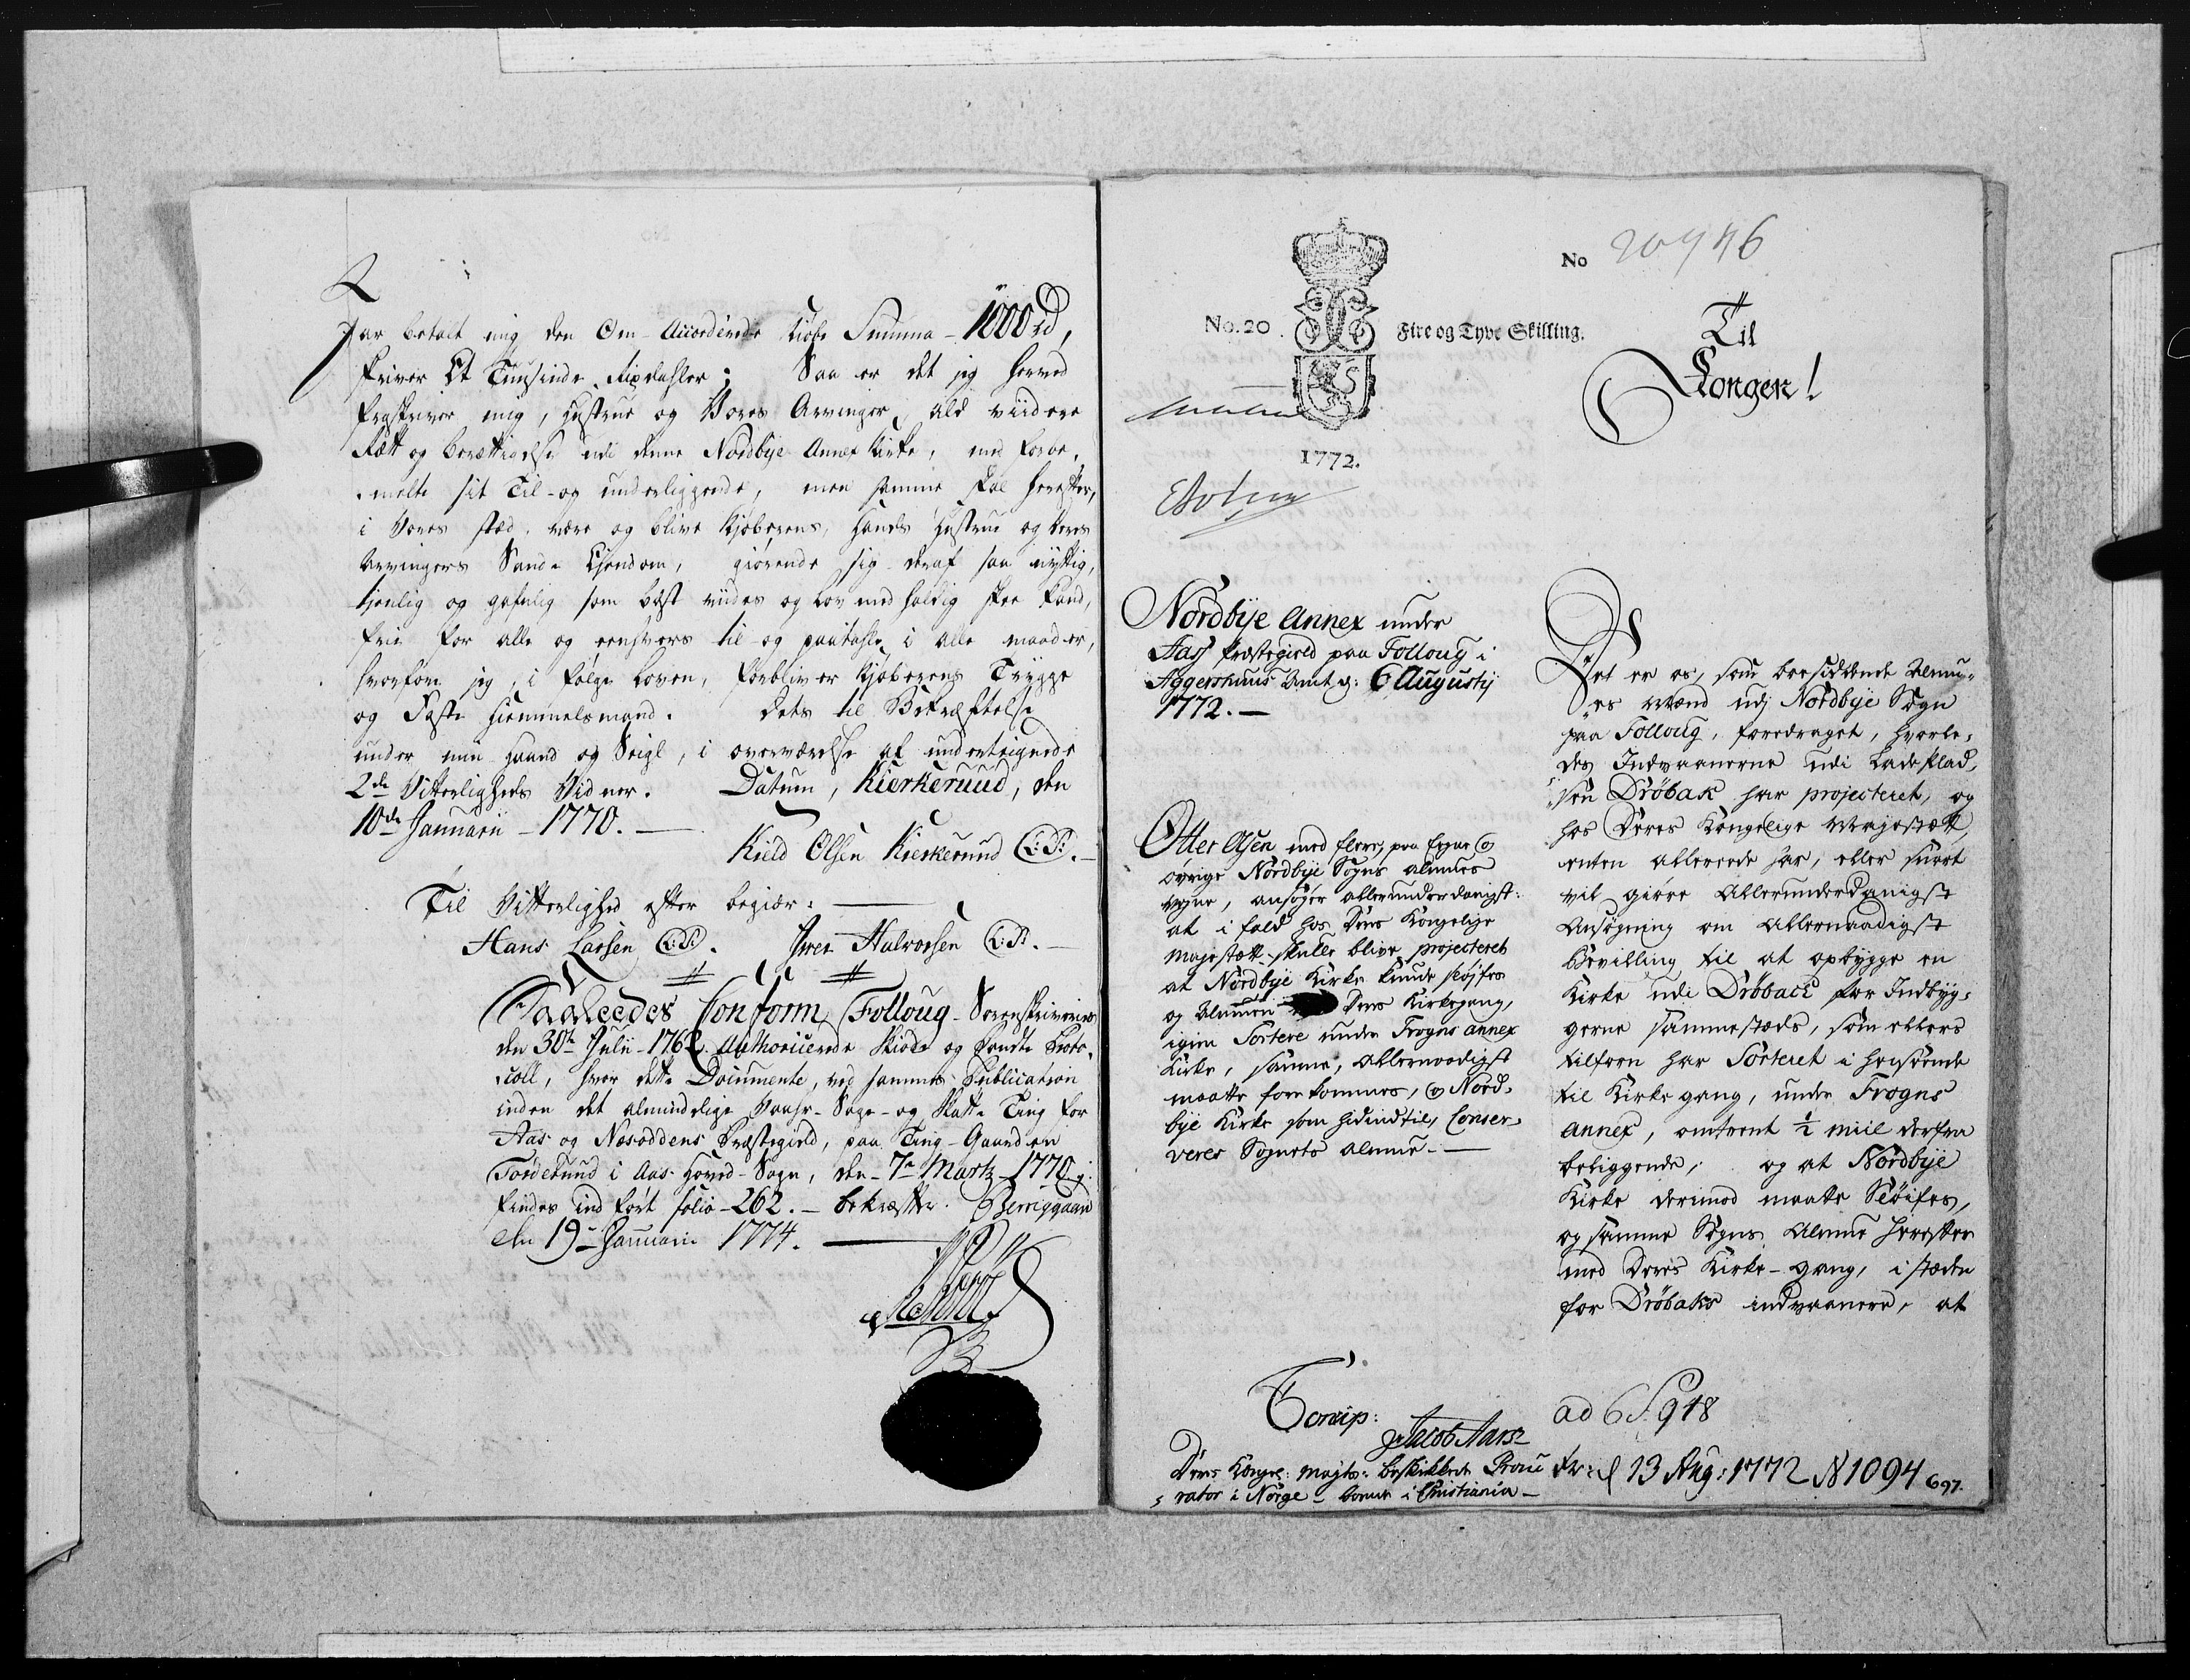 har betalt mig den Om-Accorderede Kiøbe Summa - 1000 rd,
skriver Et Tuusinde Rixdahler; Saa er det jeg herved
fraskriver mig, Hustrue og Vores Arvinger, ald viidere
Rætt og berættigelse udi denne Nordbye Annex Kirke, med forbe-
melte sit Til- og underliggende, men samme skal herefter,
i Vores stæd, være og blive Kjøberens, Hands Hustrue og deres
Arvingers Sande Ejendom, giørende sig deraf saa nyttig,
tjenlig og gafnlig som bæst viides og lovmedholdig skee kand,
frie for alle og eenhvers til- og paatahle i alle maader,
hvorfore jeg, i følge Loven, forbliver Kjøberens Trygge
og Faste Hiemmelsmand. Dets til Bekræftelse
under min Haand og Seigl, i overværelse af undertegnede
2de Vitterligheds Vidner. Datum, Kierkeruud, den
10de Januarii - 1770.
Kield Olsen Kierkeruud (L:S:).
Til Vitterlighed efter begiær:
Hans Larsen (L:S:). Iver Halvorsen (L:S:).
Saaleedes Conform Folloug-Sorenskriveries
den 30te Julii - 1762 Authoricerede Skiøde og Pandte Proto-
coll, hvor dette Documente, ved sammes Publication
inden det almindelige Vaahr-Sage- og Skatte Ting for
Aas og Næsoddens Præstegield, paa Ting-Gaarden
Torderuud i Aas Hoved-Sogn, den 7de Martz 1770
findes indført folio - 262. - bekræfter. Berriggaard
den 19de Januarii 1774.
No 20446
No. 20. Fire og Tyve Skilling.
1772.
Til
Kongen!
Nordbye Annex under
Aas Præstegield paa Folloug i
Aggershuus Amt d: 6 Augustij
1772.
Otter Olsen med fleere, paa Egne og
øvrige Nordbye Sogns almues
Vegne, ansøger allerunderdanigst:
at i fald hos Deres Kongelige
Majestætt skulle blive projecteret
at Nordbye Kirke kunde sløjfes
og Almuen Deres Kirkegang,
igien Sortere under Frogns annex
Kirke, samme, allernaadigst
maatte forekommes, og Nord-
bye Kirke som hidindtil, Conser-
veres Sognets almue.
Concip:
Jacob Aars
Deres Kongel: Majts: beskikkede Procu
rator i Norge - boende i Christiania
Det er os, som boesiddende Almu-
es Mænd udj Nordbye Sogn
paa Folloug, foredraget, hvorle-
des Indvaanerne udi Ladestad-
sen Drøbak har projecteret, og
hos Deres Kongelige Majestætt,
enten allereede har, eller snart
vil giøre Allerunderdanigst
Ansøgning om Allernaadigst
Bevilling til at opbygge en
Kirke udi Drøbach for Indbyg-
gerne sammestæds, som ellers
tilforn har Sorteret i henseende
til Kirkegang, under Frogns
annex, omtrent ½ miil derfra
beliggende, og at Nordbye
Kirke derimod maatte Sløifes,
og samme Sogns Almue herefter
med Deres Kirke-gang, i stæden
for Drøbaks indvaanere, at
ad 6 S: 918
Pr: d 13 Aug: 1772 N 1094
697.